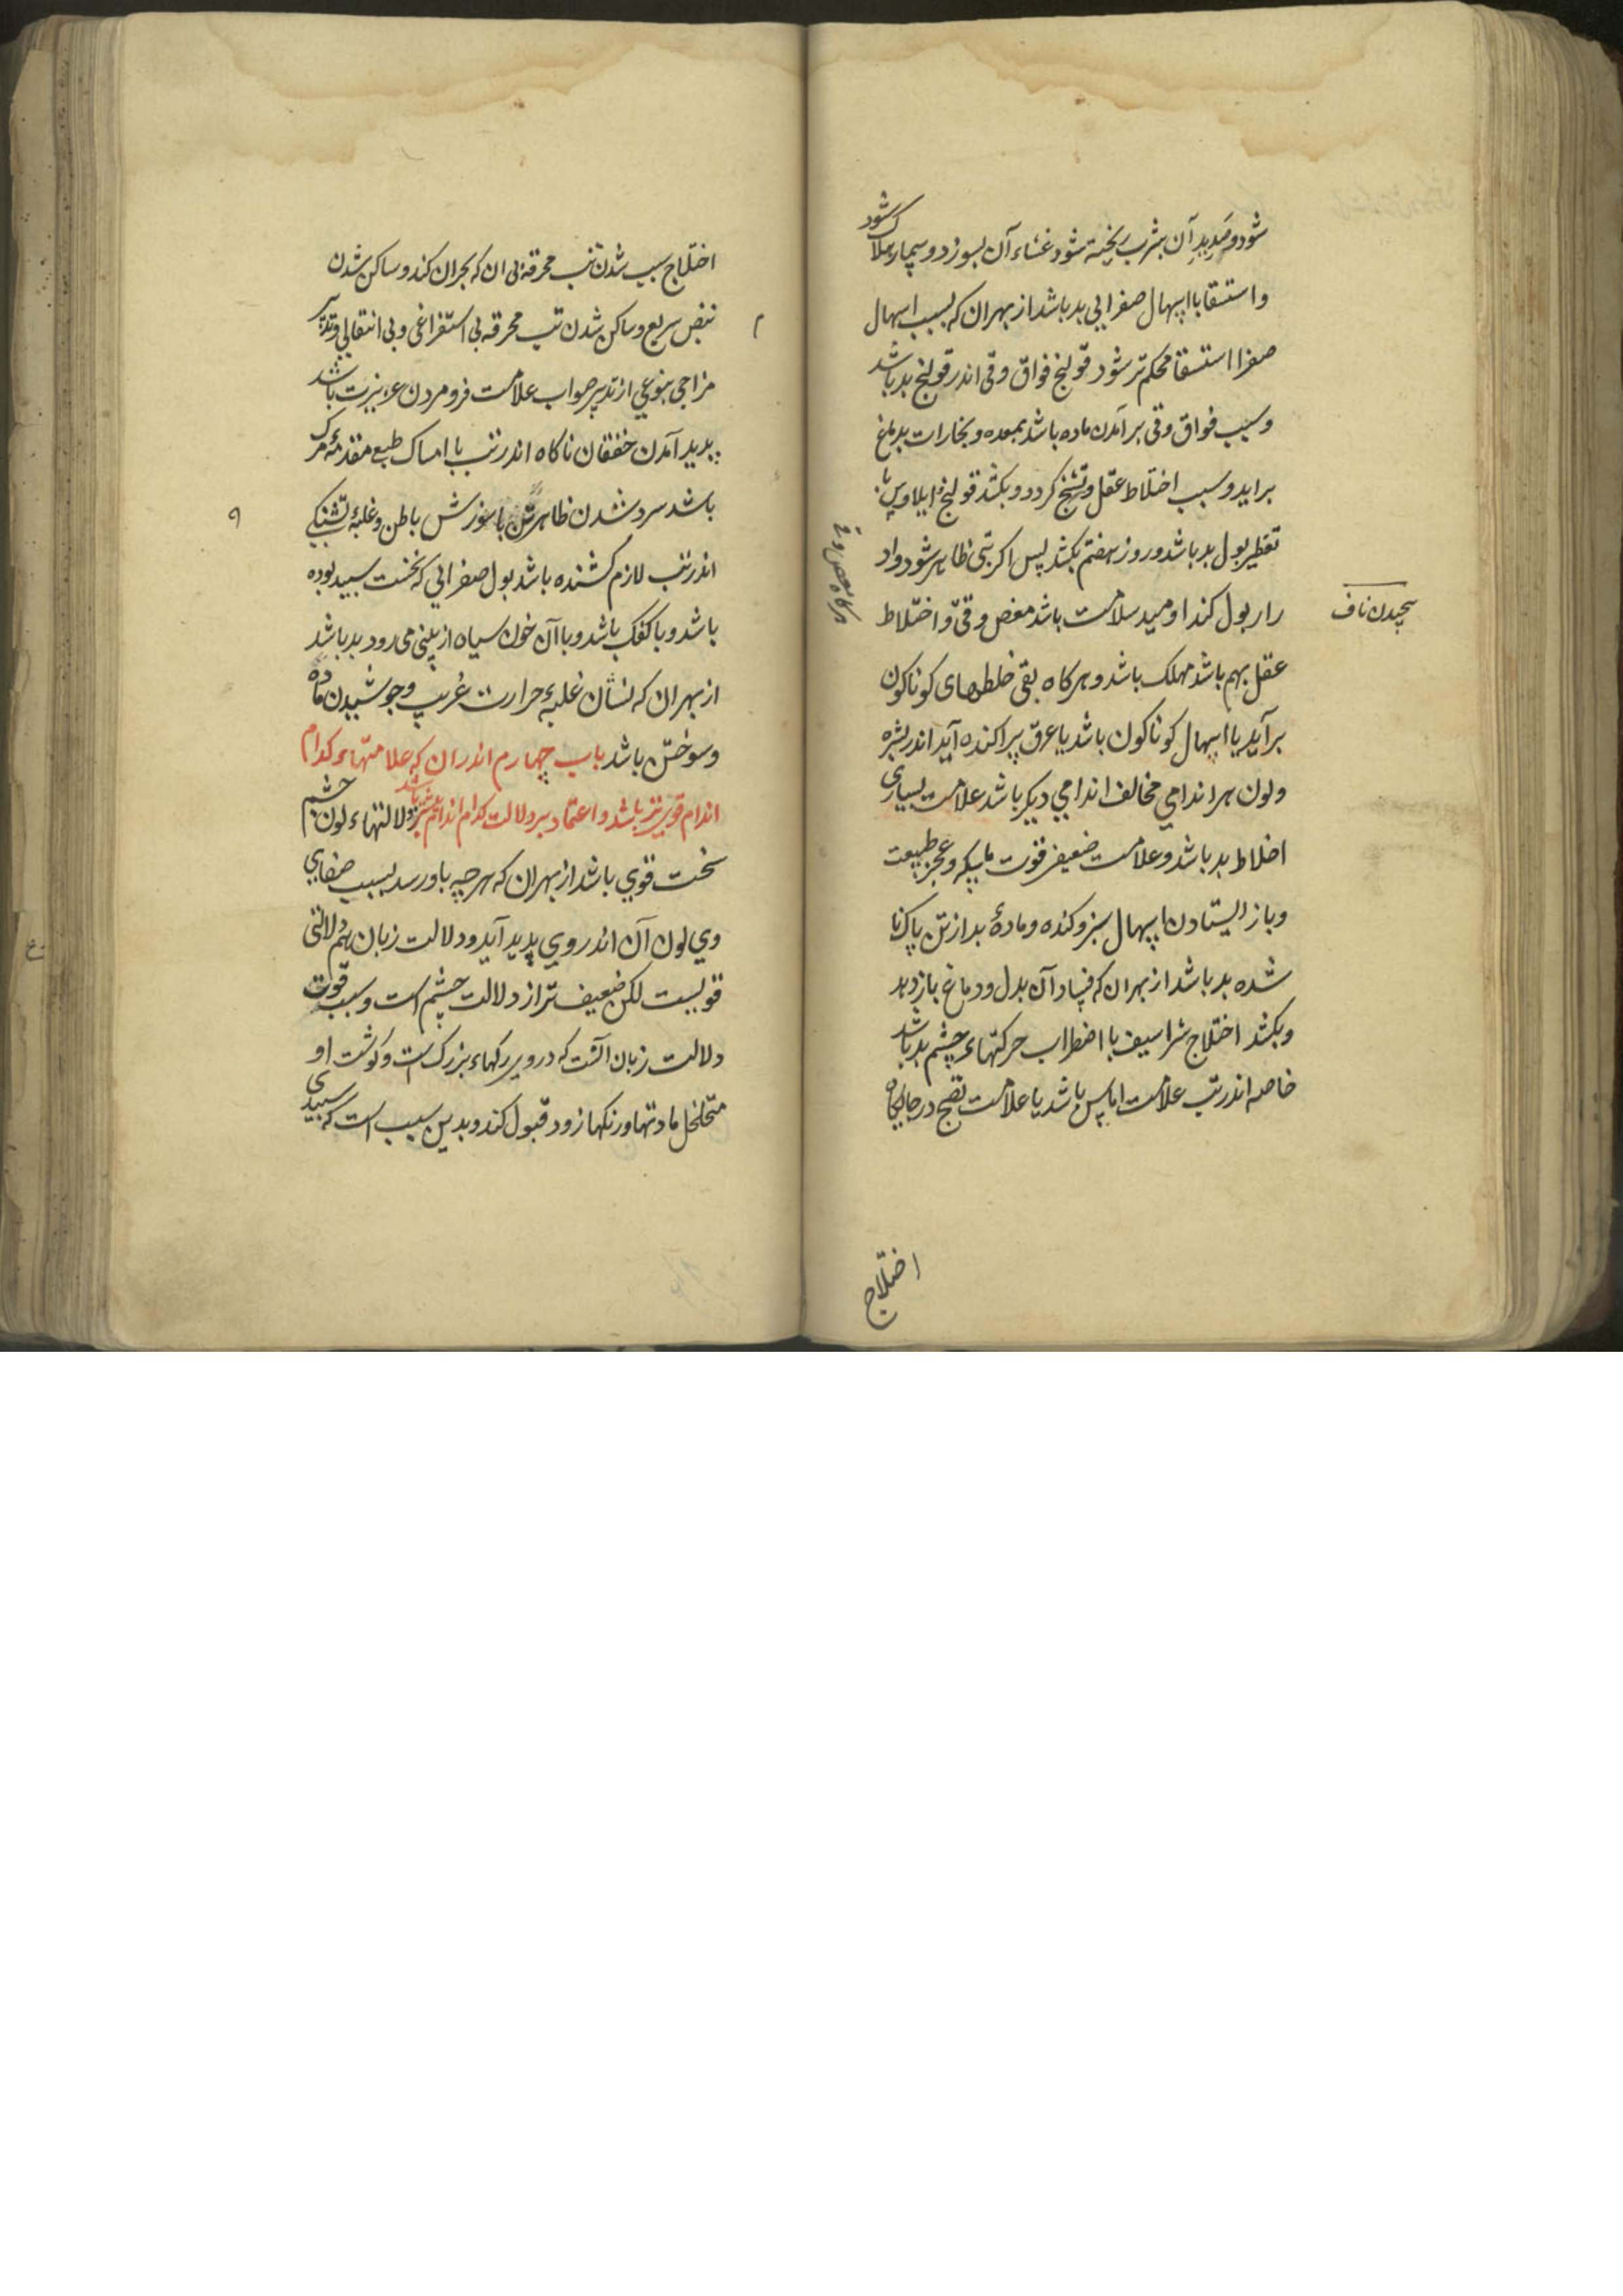 شود و صدید آن بثرب ریخته شود غشاء آن بسوزد و بیمار هلاک شود
و استسقا با اسهال صفرایی بد باشد از بهر ان که بسبب اسهال
صفرا استسقا محکم تر شود قولنج فواق و قی اندر قولنج بد باشد
و سبب فواق و قی بر آمدن ماده باشد بمعده و بخارات بدماغ
براید و سبب اختلاط عقل و تشنج کردد و بکشد قولنج ایلاوس با
تقطیر بول بد باشد و روز هفتم بکشد پس اکر تبی ظاهر شود و اد
رار بول کند اومید سلامت باشد مغص و قی و اختلاط
پیچیدن ناف
عقل بهم باشد مهلک باشد و هرکاه بقی خلطهای کوناکون
برآید یا اسهال کوناکون باشد یا عرق پراکنده آید اندر بشره
و لون هر اندامی مخالف اندامی دیکر باشد علامت بسیاری
اخلاط بد باشد و علامت ضعیفی قوت ماسکه و عجز طبیعت
و باز ایستادن اسهال سبز و کنده و مادهٔ بد از تن پاک نا
شده بد باشد از بهر ان که فساد آن بدل و دماغ باز دهد
و بکشد اختلاج شراسیف با اضطراب حرکتهاء چشم بد باشد
خاصه اندر تب علامت اماس باشد یا علامت نضج در جایکاه
اختلاج
اختلاج سبب شدن تب محرقه بی ان که بحران کند و ساکن شدن
نبض سریع و ساکن شدن تب محرقه بی استفراغی و بی انتقالی و تدبیر
مزاجی بنوعی از تدبیر صواب علامت فرو مردن عزیزت باشد
پدید آمدن خفقان ناکاه اندر تب با امساک طبع مقدمهٔ مرک
باشد سرد شدن ظاهر تن با سوزش باطن و غلبهٔ تشنکی
اندر تب لازم کشنده باشد بول صفرایی که نخست سپید بوده
باشد و با کفک باشد و با آن خون سیاه از بینی می رود بد باشد
از بهر ان که نشان غلبهٔ حرارت غریب و جوشیدن ماده
و سوختن باشد باب چهارم اندران که علامتهاء کدام
اندام قوی تر باشد و اعتماد بر دلالت کدام اندام بیشتر باشد دلالتهاء لون چشم
سخت قوی باشد از بهر ان که هر چه باو رسد بسبب صفایی
وی لون آن اندر وی پدید آید و دلالت زبان هم دلالتی
قویست لکن ضعیف تر از دلالت چشم است و سبب قوت
دلالت زبان آنست که در وی رکهاء بزرک است و کوشت او
متخلخل مادتها و رنکها زود قبول کند و بدین سبب است که سپیدی